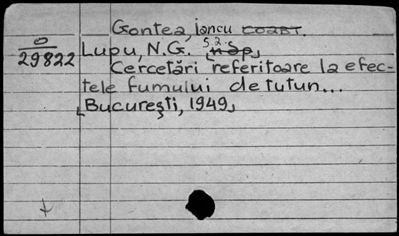 Gontea, Iancu
O
29822
Lupu, N.G. ș.a.
Cercetări referitoare la efec-
tele fumului de tutun...
[București, 1949]